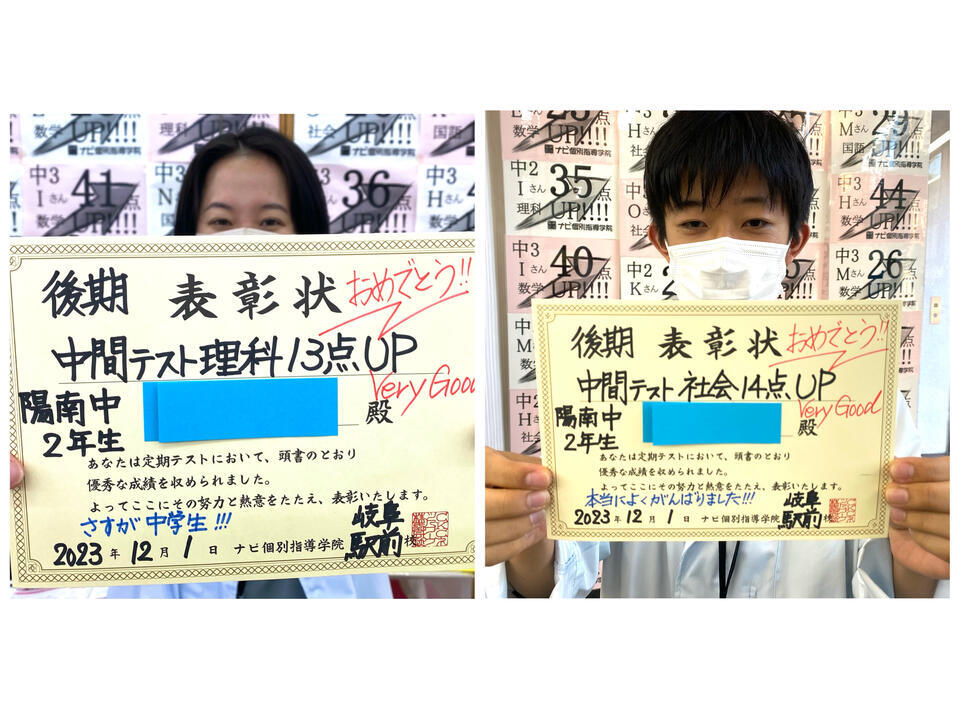 数学 UP!!!!
理科 UP!!!!
社会 UP!!!!
国語
ナビ個別指導学院
中3
Iさん
41
UP!!!!
中3
36
点
中3
Hさん
後期 表彰状 おめでとう!!
中間テスト理科13点UP
Very Good
陽南中
2年生
殿
あなたは定期テストにおいて、頭書のとおり
優秀な成績を収められました。
よってここにその努力と熱意をたたえ、表彰いたします。
さすが中学生!!!
2023年12月1日 ナビ個別指導学院 岐阜駅前校
中2
Iさん
35
理科 UP!!!!
中3
Iさん
40
数学
中2
社会
29
国語 UP!!!!
ナビ個別指導学院
中3
Hさん
44
点
数学 UP!!!!
ナビ個別指導学院
中3
Mさん
26
点
数学
後期 表彰状 おめでとう!!
中間テスト社会14点UP
Very Good
陽南中
2年生
殿
あなたは定期テストにおいて、頭書のとおり
優秀な成績を収められました。
よってここにその努力と熱意をたたえ、表彰いたします。
本当によくがんばりました!!!
2023年12月1日 ナビ個別指導学院 岐阜駅前校